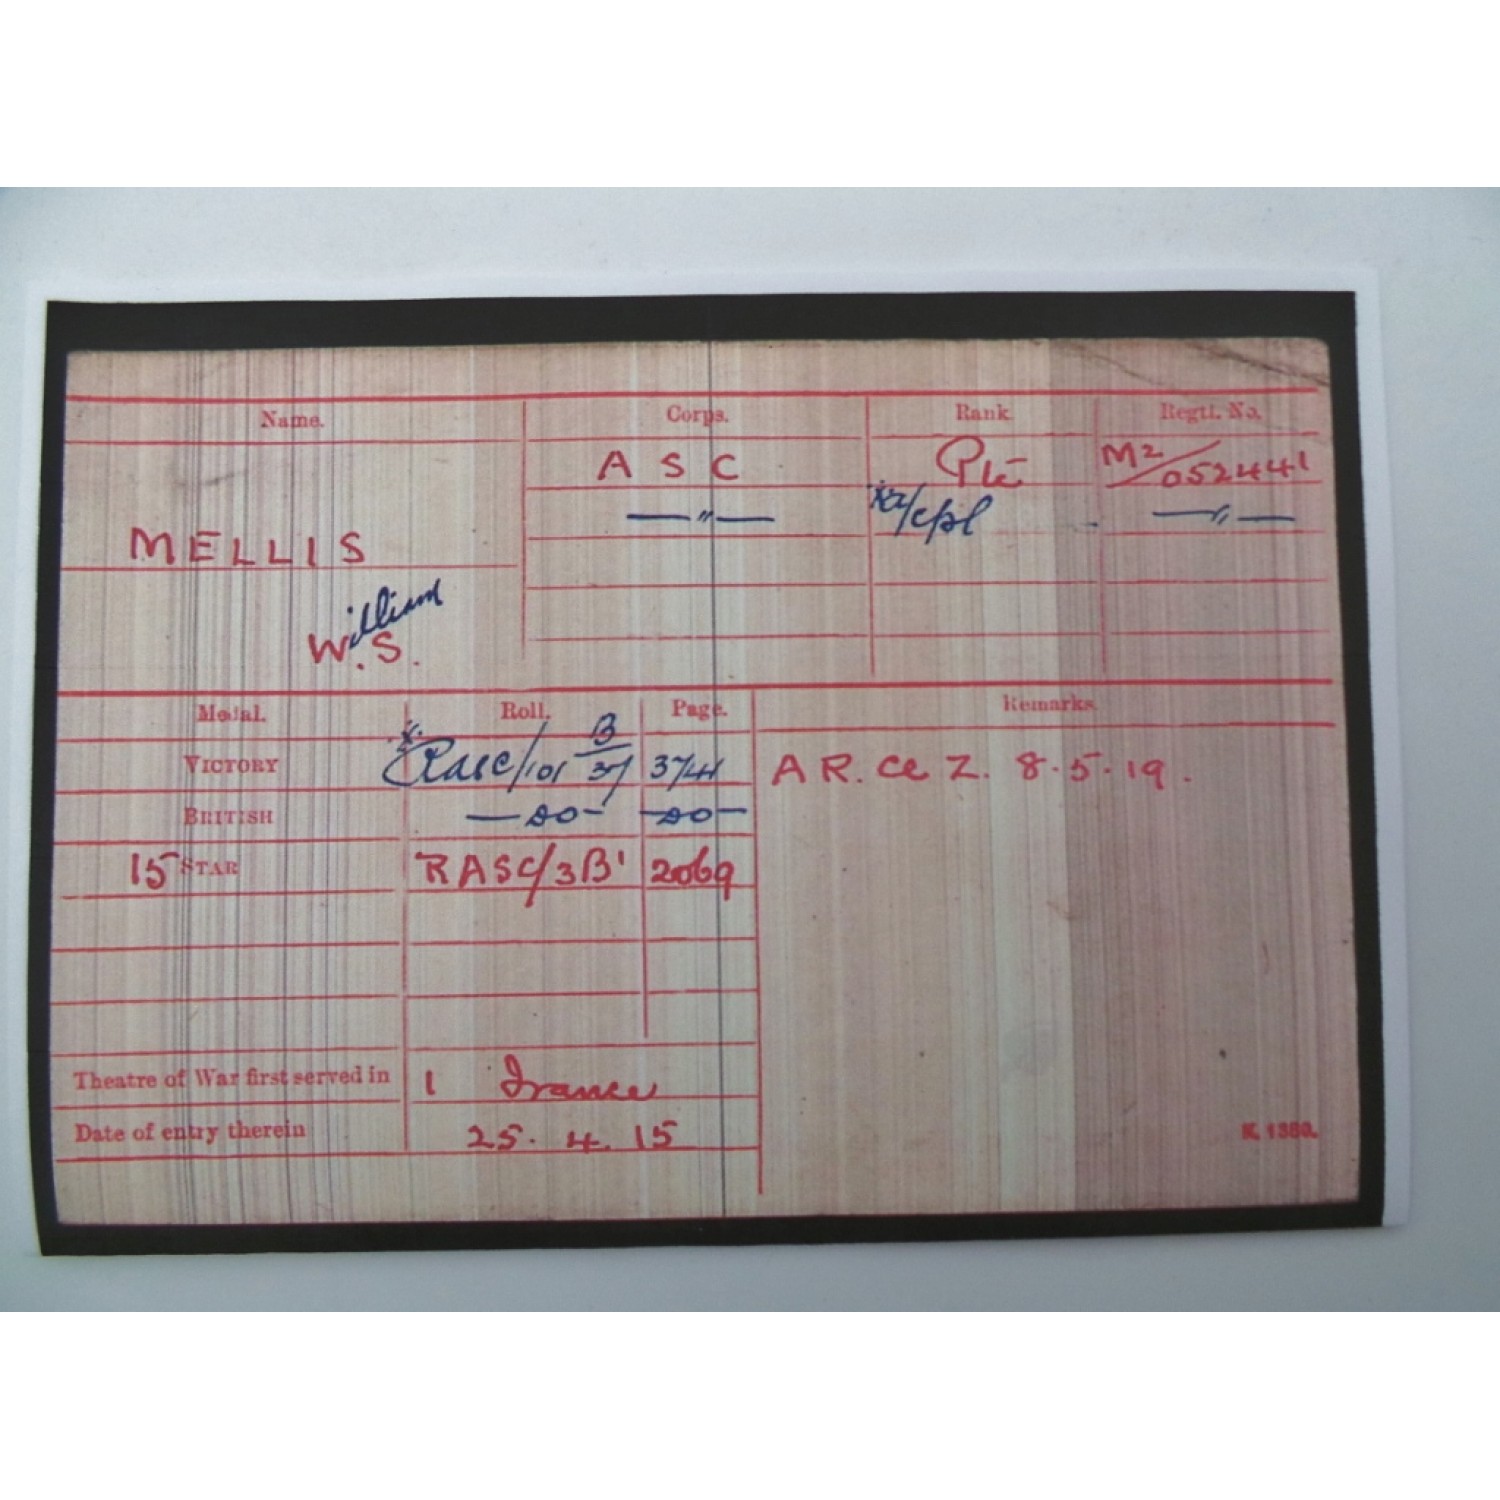 Name. Corps. Rank. Regtl. No.
A S C Pte M2/052441
—"— x a/cpl —"—
MELLIS
William
W.S.
Medal. Roll. Page. Remarks.
VICTORY x RASC/101 B/37 3741 A R. Cl Z. 8.5.19.
BRITISH —do— —do—
15 STAR RASC/3B' 2069
Theatre of War first served in 1 France
Date of entry therein 25. 4. 15
K. 1380.